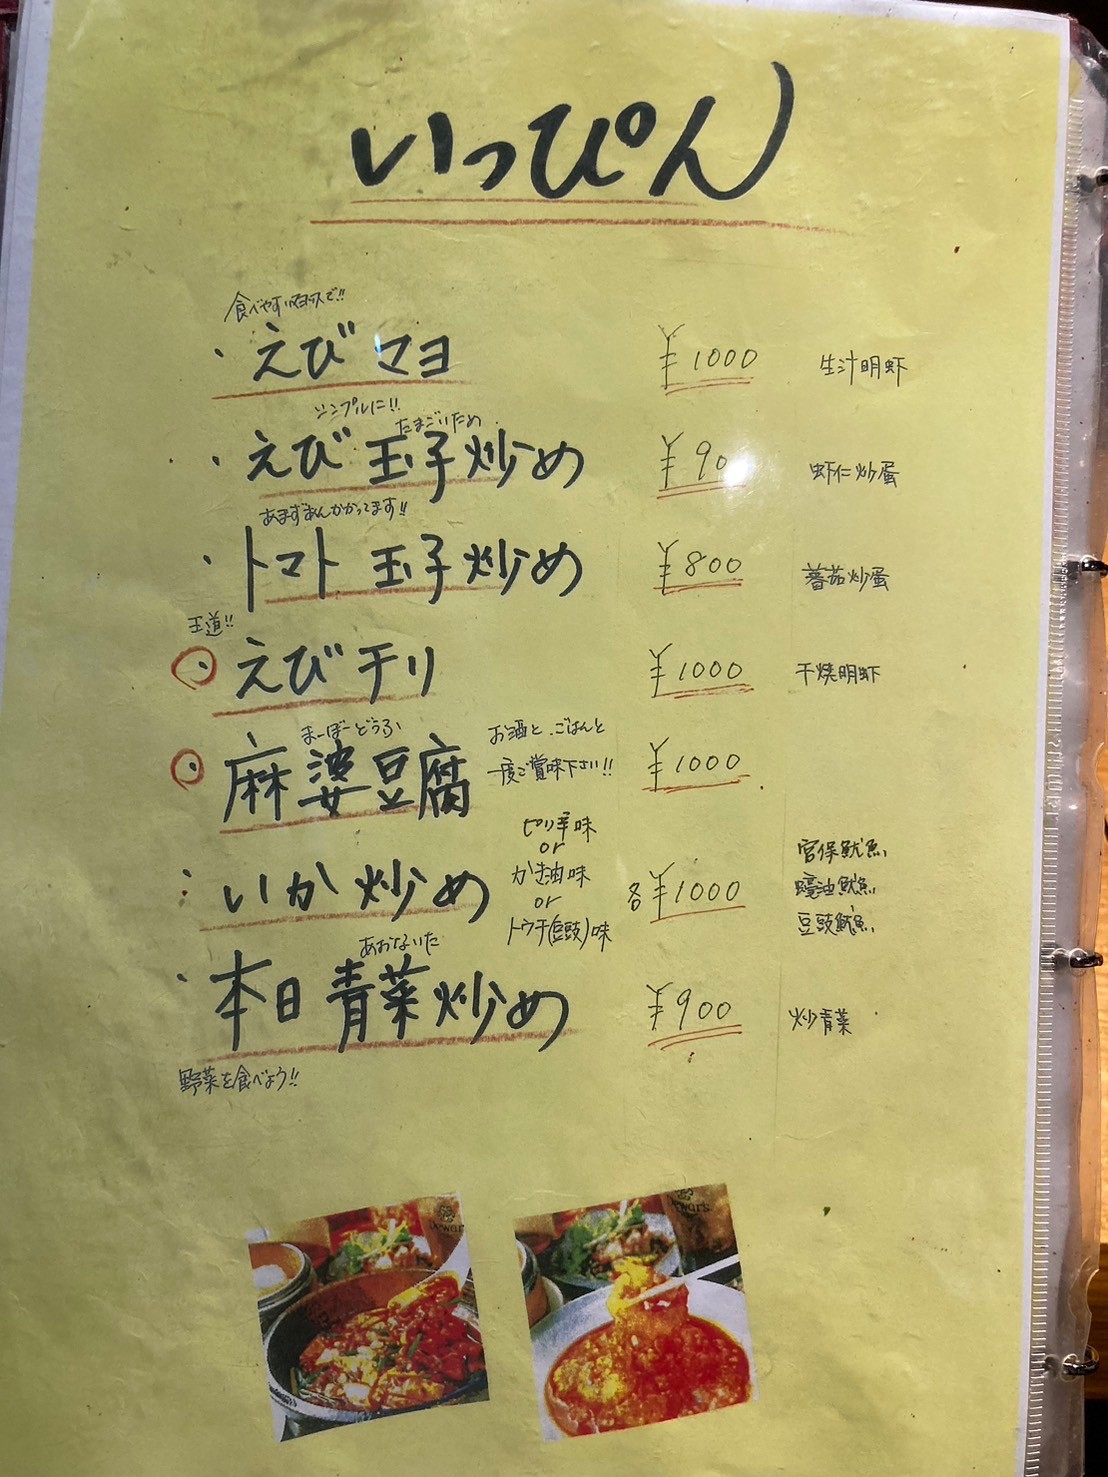 いっぴん
食べやすいマヨソースで!!
・えび マヨ ¥1000 生汁明虾
シンプルに!! たまごいため
・えび 玉子炒め ¥90 虾仁炒蛋
あまずあんかかってます!!
・トマト 玉子炒め ¥800 蕃茄炒蛋
王道!!
・えびチリ ¥1000 干焼明虾
まーぼーどうふ
・麻婆豆腐 お酒と、ごはんと 一度ご賞味下さい!! ¥1000
・いか炒め 各¥1000
ピリ辛味
or
かき油味
or
トウチ(豆豉)味
宮保魷魚
蠔油魷魚
豆豉魷魚
あおないた
・本日 青菜炒め ¥900 炒青菜
野菜を食べよう!!
Dewar's
Dewar's